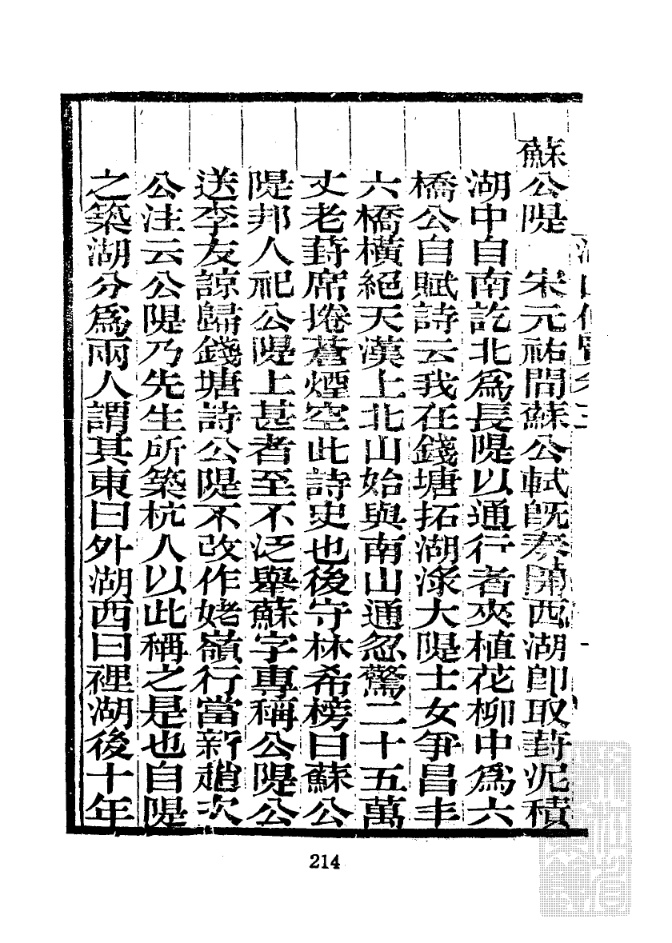 蘇公隄　宋元祐間蘇公軾旣奏開西湖卽取葑泥積
湖中自南訖北爲長隄以通行者夾植花柳中爲六
橋公自賦詩云我在錢塘拓湖渌大隄士女爭昌丰
六橋橫絕天漢上北山始與南山通忽驚二十五萬
丈老葑席捲蒼煙空此詩史也後守林希榜曰蘇公
隄邦人祀公隄上甚者至不泛舉蘇字專稱公隄公
送李友諒歸錢塘詩公隄不改作姥嶺行當新趙次
公注云公隄乃先生所築杭人以此稱之是也自隄
之築湖分爲兩人謂其東曰外湖西曰裡湖後十年
214